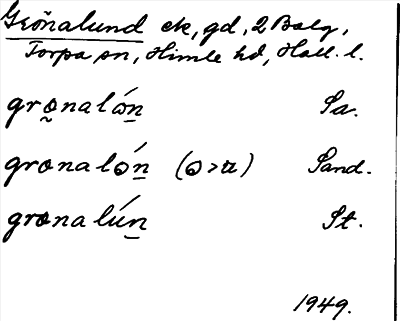 Grönalund ck, gd, 2 Balg,
Torpa sn, Himle hd, Hall. l.
gro̰nalɷ́n̲ Sa.
gronalɷ́n̲ (ɷ>u) Sand.
grɷnalún̲ St.
1949.